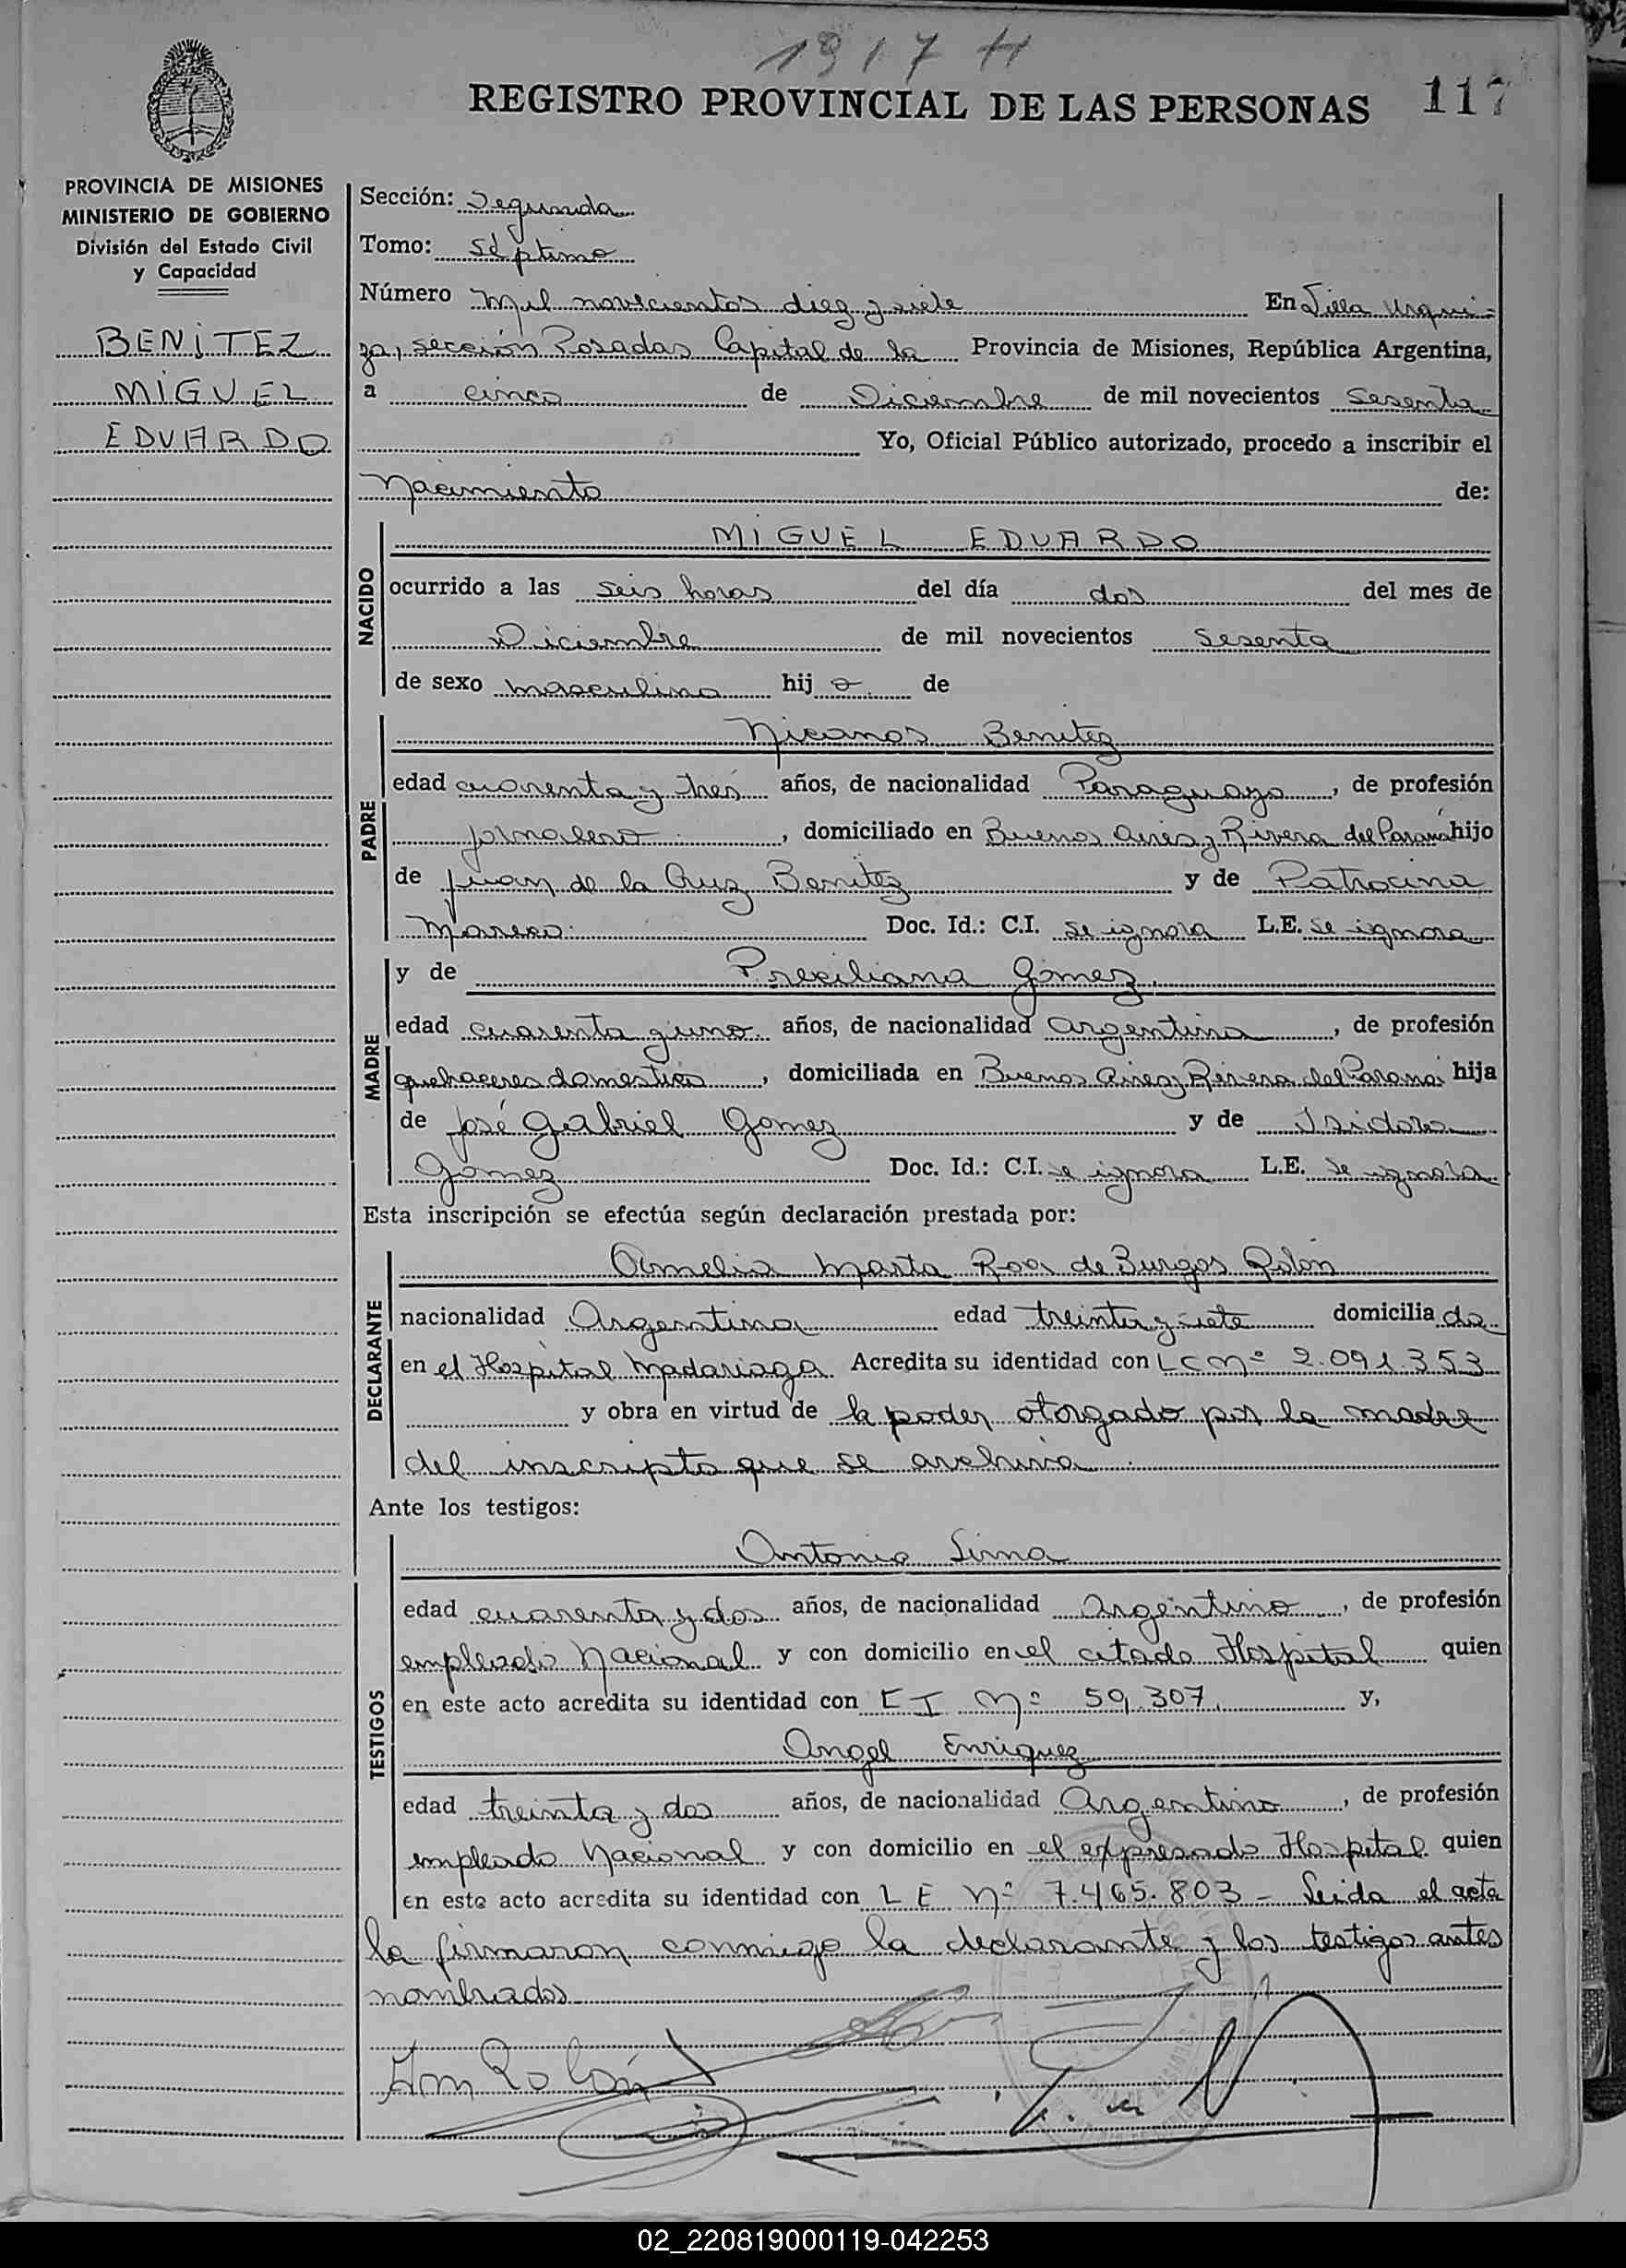 1917 H
REGISTRO PROVINCIAL DE LAS PERSONAS 117
PROVINCIA DE MISIONES
MINISTERIO DE GOBIERNO
División del Estado Civil
y Capacidad
BENITEZ
MIGUEL
EDUARDO
Sección: Segunda
Tomo: Séptimo
Número Mil novecientos diez y siete En Villa Urqui-
za, sección Posadas Capital de la Provincia de Misiones, República Argentina,
a cinco de Diciembre de mil novecientos Sesenta
Yo, Oficial Público autorizado, procedo a inscribir el
Nacimiento de:
NACIDO
MIGUEL EDUARDO
ocurrido a las seis horas del día dos del mes de
Diciembre de mil novecientos Sesenta
de sexo masculino hijo de
PADRE
Nicanor Benitez
edad cuarenta y tres años, de nacionalidad Paraguaya, de profesión
jornalero, domiciliado en Buenos Aires y Rivera del Paraná hijo
de Juan de la Cruz Benitez y de Patrocina
Doc. Id.: C.I. se ignora L.E. se ignora
MADRE
y de Prexiliana Gomez
edad cuarenta y uno años, de nacionalidad argentina, de profesión
quehaceres domesticos, domiciliada en Buenos Aires y Rivera del Paraná hija
de José Gabriel Gomez y de Isidora
Gomez Doc. Id.: C.I. se ignora L.E. se ignora
Esta inscripción se efectúa según declaración prestada por:
DECLARANTE
Amelia Marta Roa de Burgos Rolón
nacionalidad Argentina edad treinta y siete domiciliada
en el Hospital Madariaga Acredita su identidad con LC Nº 2.091.353
y obra en virtud de la poder otorgado por la madre
del inscripto que se archiva
Ante los testigos:
TESTIGOS
Antonio Sirna
edad cuarenta y dos años, de nacionalidad Argentino, de profesión
empleado Nacional y con domicilio en el citado Hospital quien
en este acto acredita su identidad con C I Nº 59.307. y,
Angel Enriquez
edad treinta y dos años, de nacionalidad Argentino, de profesión
empleado Nacional y con domicilio en el expresado Hospital quien
en este acto acredita su identidad con L E Nº 7.465.803 - Leida el acta
la firmaron conmigo la declarante y los testigos antes
nombrados
Am Rolón
02_220819000119-042253